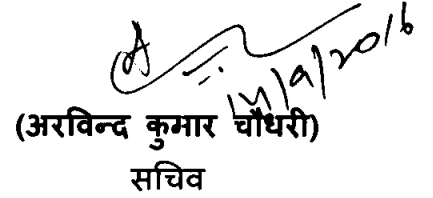 14/9/2016
(अरविन्द कुमार चौधरी)
सचिव